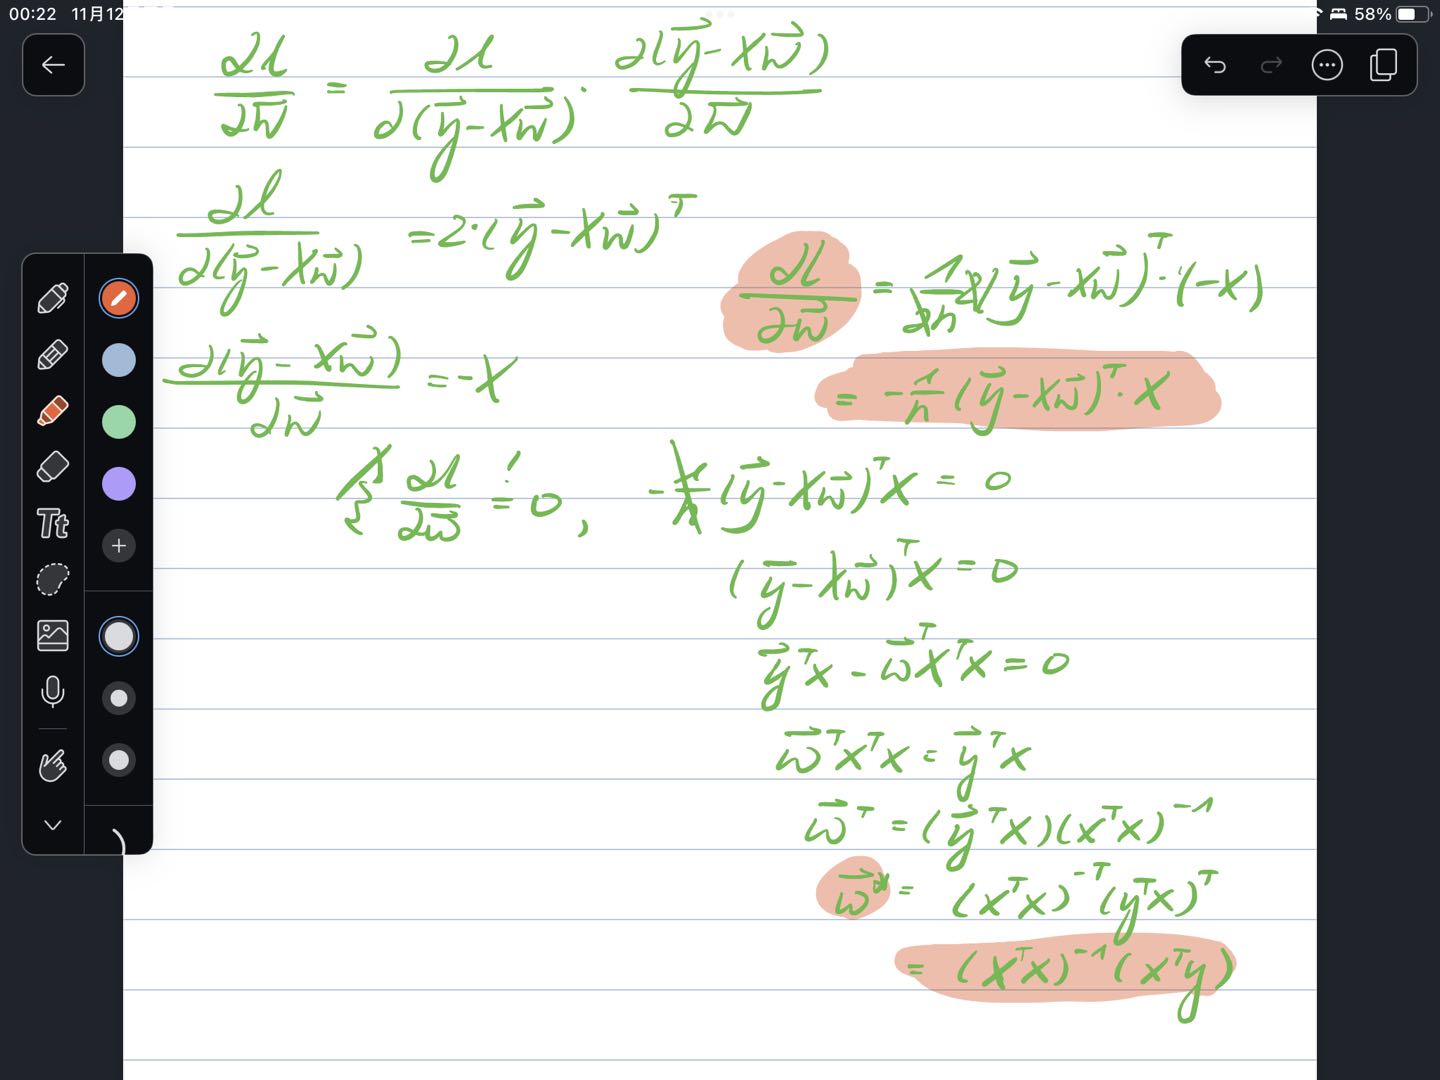 00:22 11月12
58%
∂l/∂w⃗ = ∂l/∂(y⃗-Xw⃗) · ∂(y⃗-Xw⃗)/∂w⃗
∂l/∂(y⃗-Xw⃗) = 2·(y⃗-Xw⃗)ᵀ
∂l/∂w⃗ = 1/2n 2(y⃗-Xw⃗)ᵀ·(-X)
= -1/n (y⃗-Xw⃗)ᵀ·X
∂(y⃗-Xw⃗)/∂w⃗ = -X
∂l/∂w⃗ =! 0, -1/n (y⃗-Xw⃗)ᵀX = 0
(y⃗-Xw⃗)ᵀX = 0
y⃗ᵀX - w⃗ᵀXᵀX = 0
w⃗ᵀXᵀX = y⃗ᵀX
w⃗ᵀ = (y⃗ᵀX)(XᵀX)⁻¹
w⃗* = (XᵀX)⁻ᵀ(yᵀX)ᵀ
= (XᵀX)⁻¹(Xᵀy)
Tt